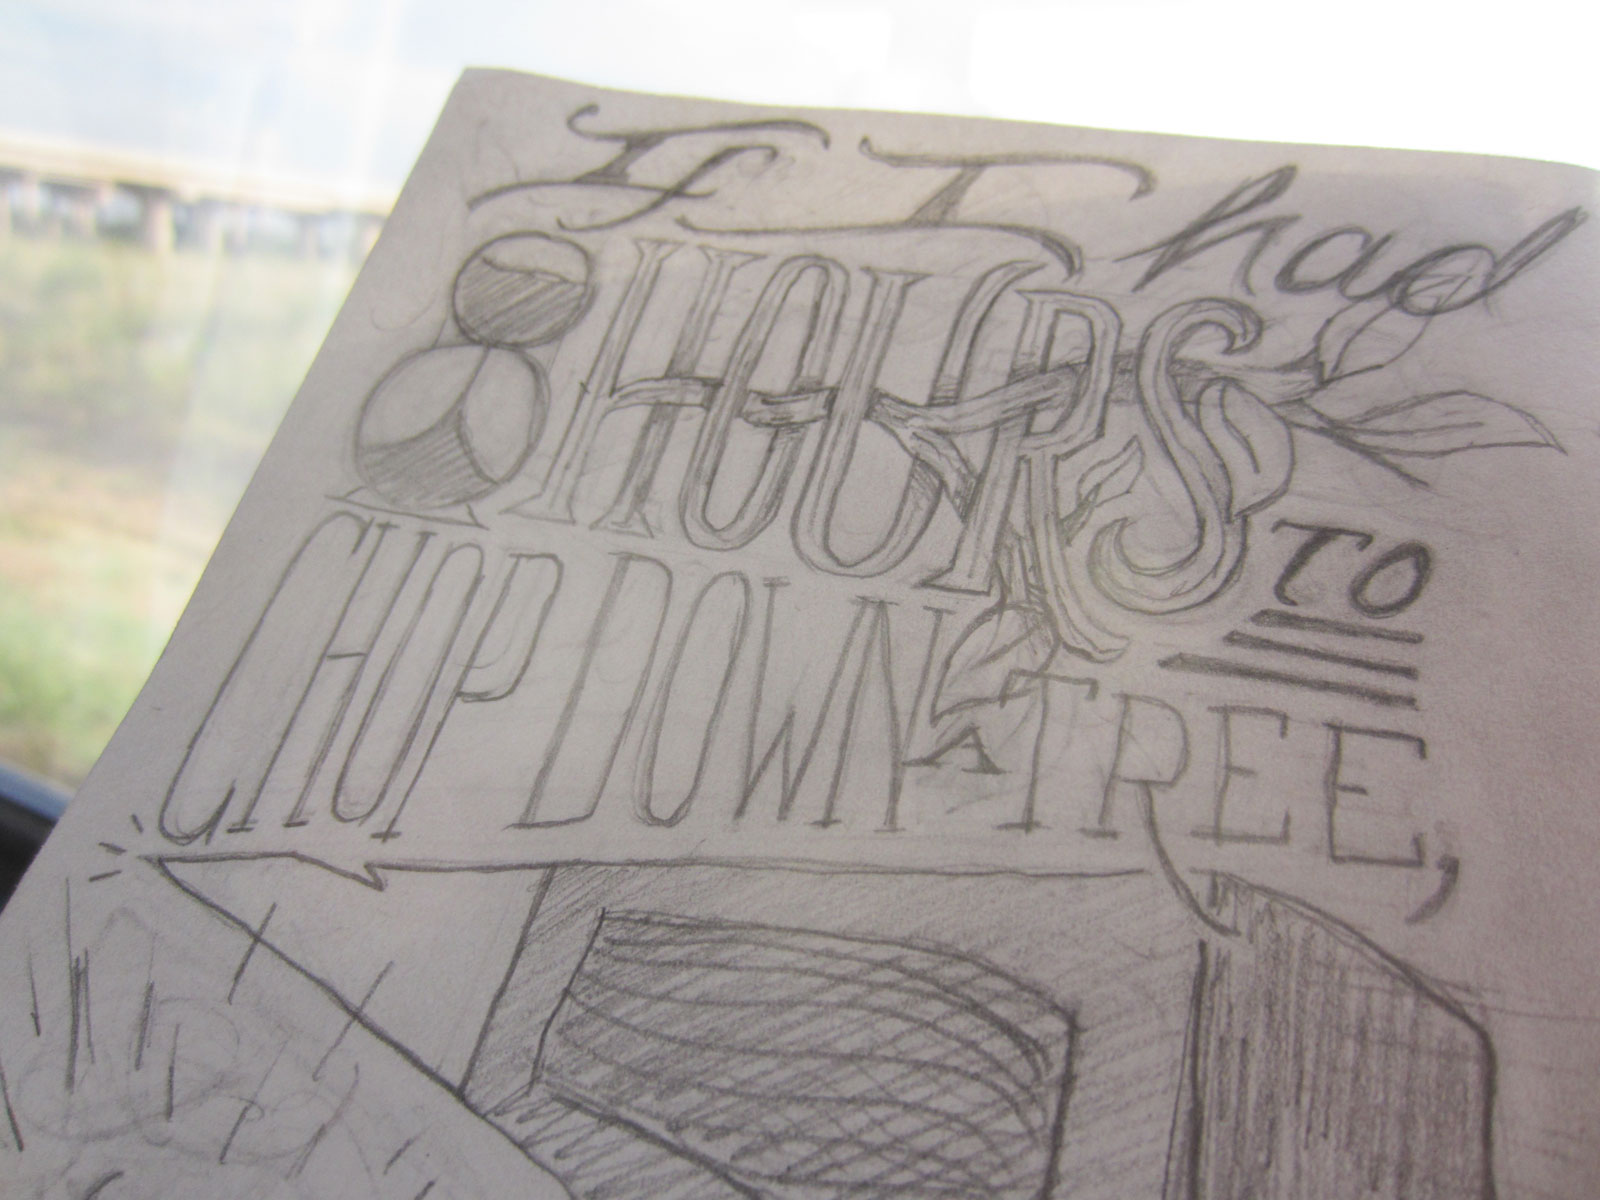 If I had
8 HOURS TO
CHOP DOWN A TREE,